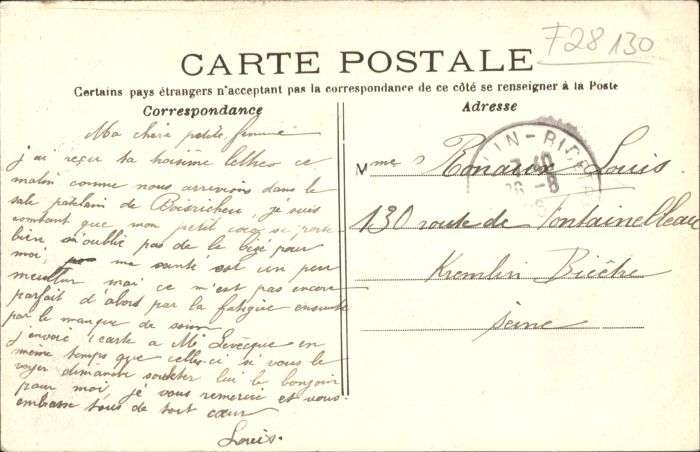 F28 130
CARTE POSTALE
Certains pays étrangers n'acceptant pas la correspondance de ce côté se renseigner à la Poste
Correspondance
Adresse
Ma chère petite femme
j'ai reçu ta troisième lettre ce
matin comme nous arrivions dans le
sale patelain de Boisricheu. je suis
content que mon petit coco se porte
bien, n'oublie pas de le bigé pour
moi, ma santé est un peu
meilleur mai ce m'est pas encore
parfait d'abors par la fatigue ensuite
par le manque de
j'envoie 1 carte a Mr Levêque en
meme temps que celle-ci si vous le
voyer dimanche soueter lui le bonjoir
pour moi, je vous remercie et vous
embrasse tous de tout cœur
Louis.
Mme Ronaux Louis
130 route de Fontainelleau
Kremlin Bicêtre
Seine
LIN-BICE